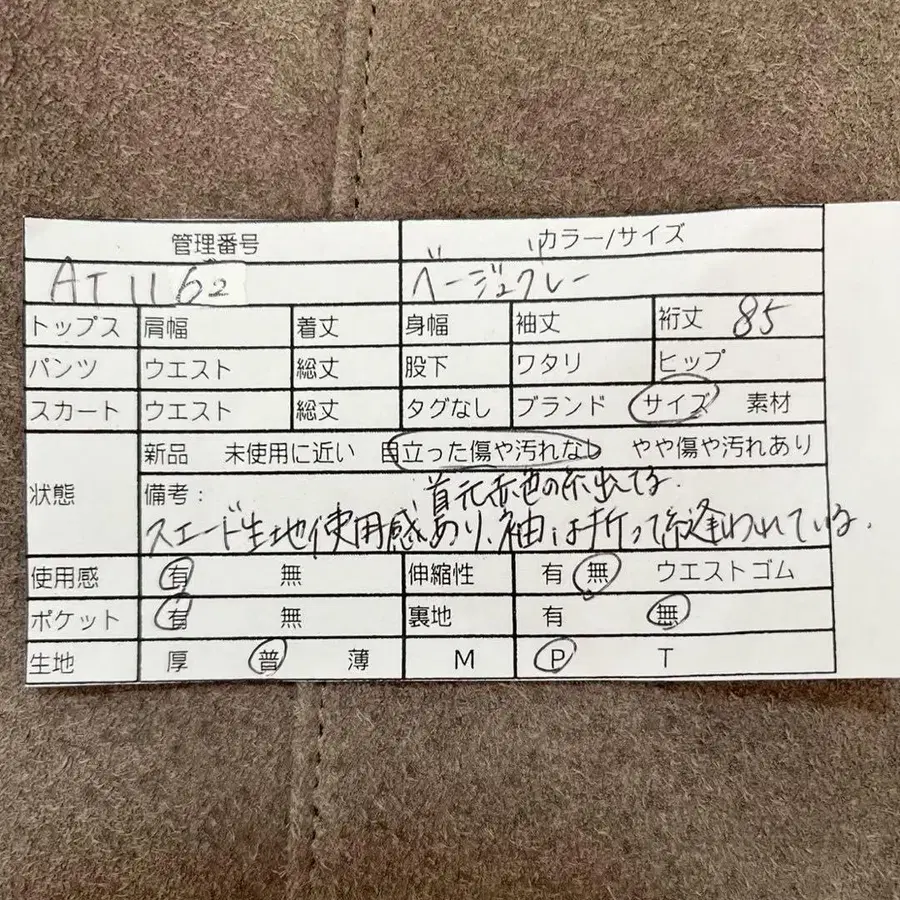 管理番号 カラー/サイズ
AT1162 ベージュグレー
トップス 肩幅 着丈 身幅 袖丈 裄丈 85
パンツ ウエスト 総丈 股下 ワタリ ヒップ
スカート ウエスト 総丈 タグなし ブランド サイズ 素材
状態 新品 未使用に近い 目立った傷や汚れなし やや傷や汚れあり
備考: 首元赤色の糸出てる.
スエード生地使用感あり、袖は折って縫われている.
使用感 有 無 伸縮性 有 無 ウエストゴム
ポケット 有 無 裏地 有 無
生地 厚 普 薄 M P T